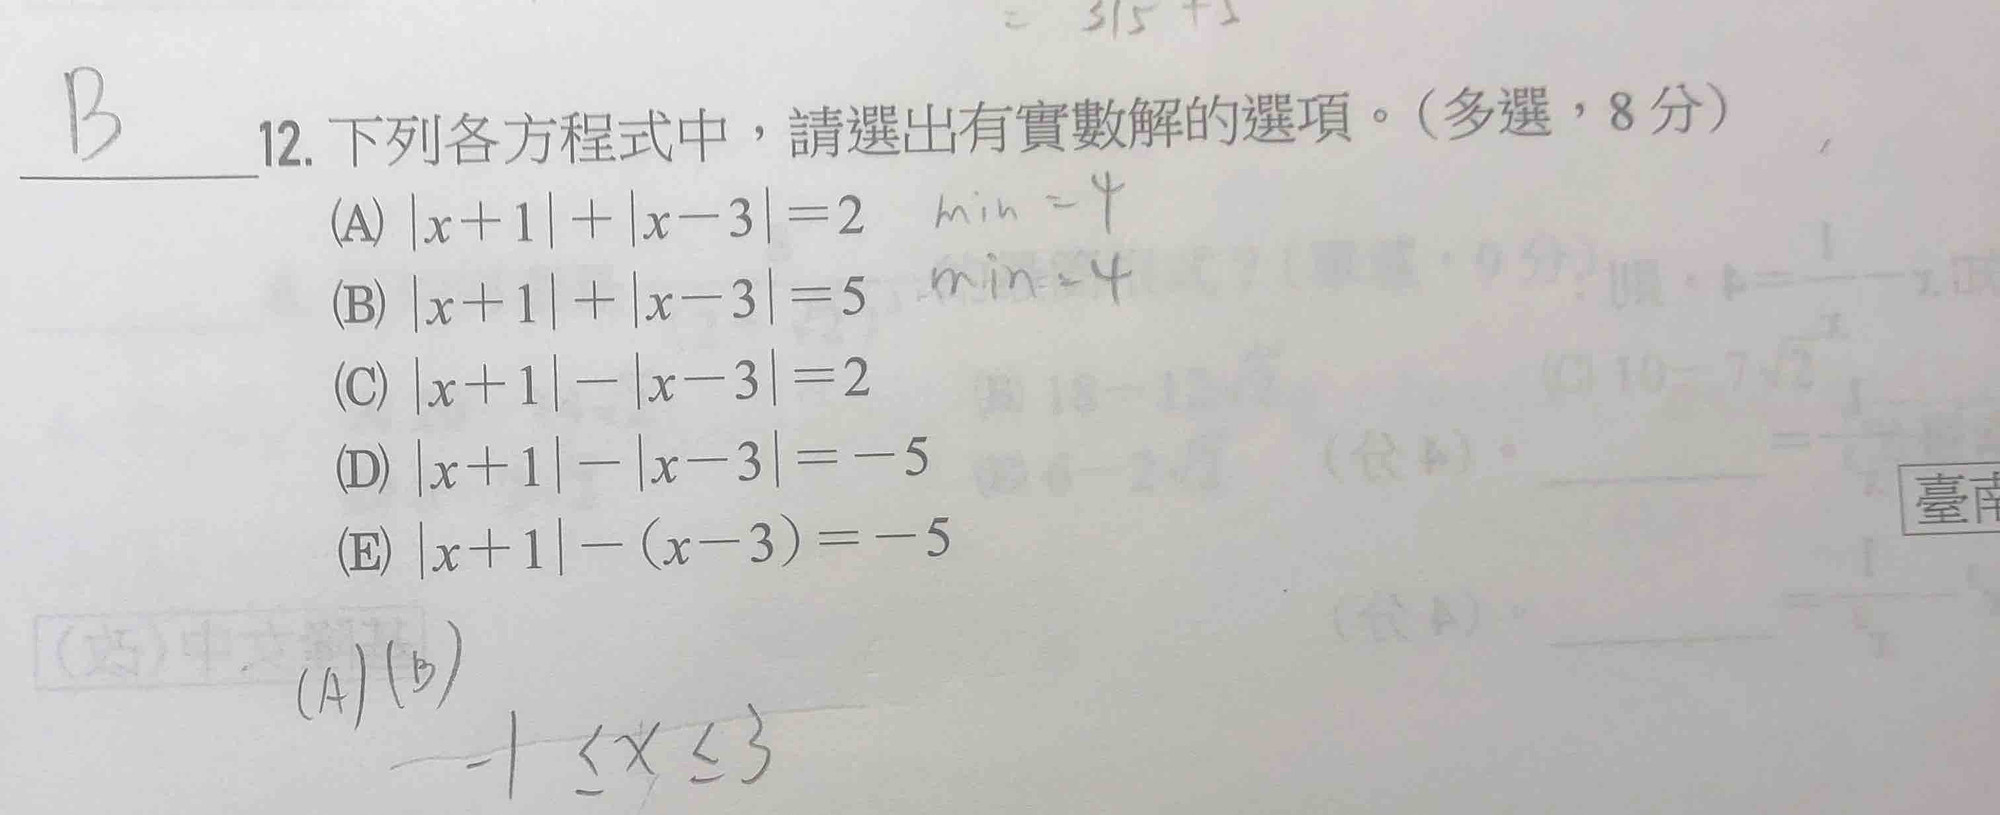 = 3√5 + 5
B 12. 下列各方程式中，請選出有實數解的選項。（多選，8 分）
(A) |x+1|+|x−3|=2 min = 4
(B) |x+1|+|x−3|=5 min = 4
(C) |x+1|−|x−3|=2
(D) |x+1|−|x−3|=−5
臺南
(E) |x+1|−(x−3)=−5
(A)(B)
−1 ≤ x ≤ 3